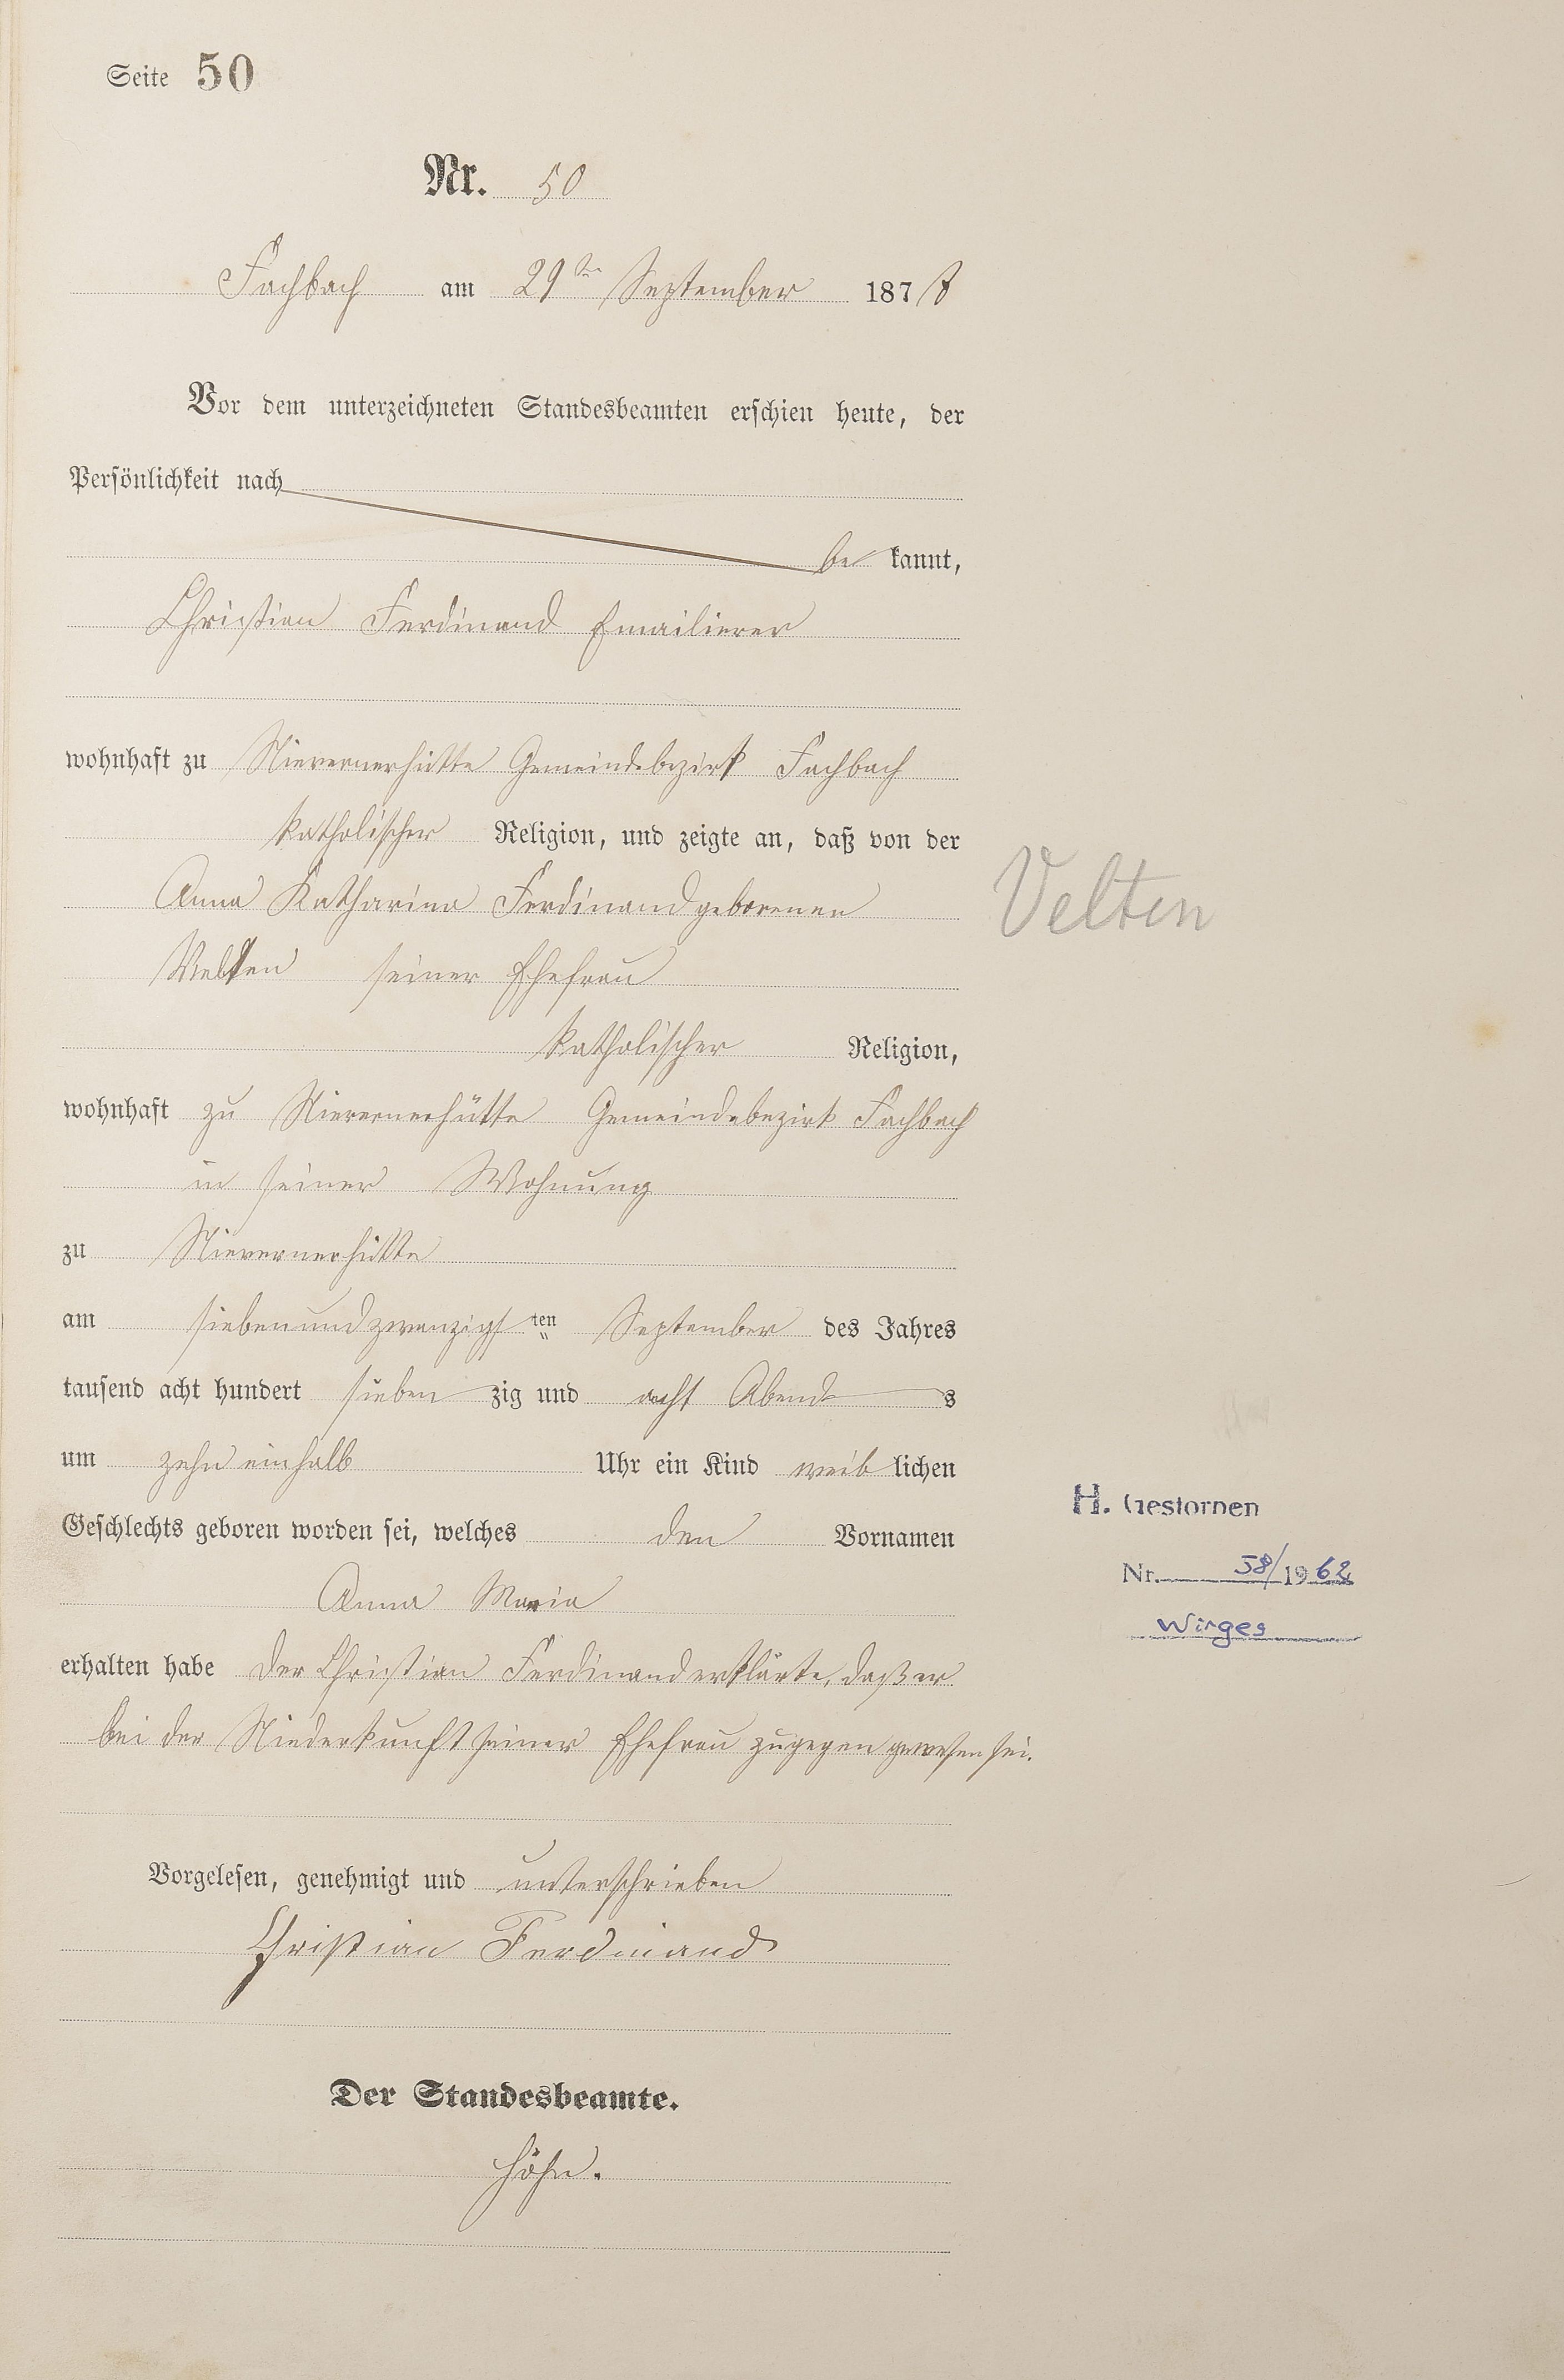 Seite 50
Nr. 50
Fachbach am 29ten September 1878
Vor dem unterzeichneten Standesbeamten erschien heute, der
Persönlichkeit nach
be kannt,
Christian Ferdinand Emailierer
wohnhaft zu Nievernerhütte Gemeindebezirk Fachbach
katholischer Religion, und zeigte an, daß von der
Anna Katharina Ferdinand geborenen
Velten
Velten seiner Ehefrau
katholischer Religion,
wohnhaft zu Nievernerhütte Gemeindebezirk Fachbach
in seiner Wohnung
zu Nievernerhütte
am siebenundzwanzigsten September des Jahres
tausend acht hundert sieben zig und acht Abends
um zehn einhalb Uhr ein Kind weib lichen
Geschlechts geboren worden sei, welches den Vornamen
Anna Maria
erhalten habe Der Christian Ferdinand erklärte, daß er
bei der Niederkunft seiner Ehefrau zugegen gewesen sei.
H. Gestorben
Nr. 58/1962
Wirges
Vorgelesen, genehmigt und unterschrieben
Christian Ferdinand
Der Standesbeamte.
Höhn.